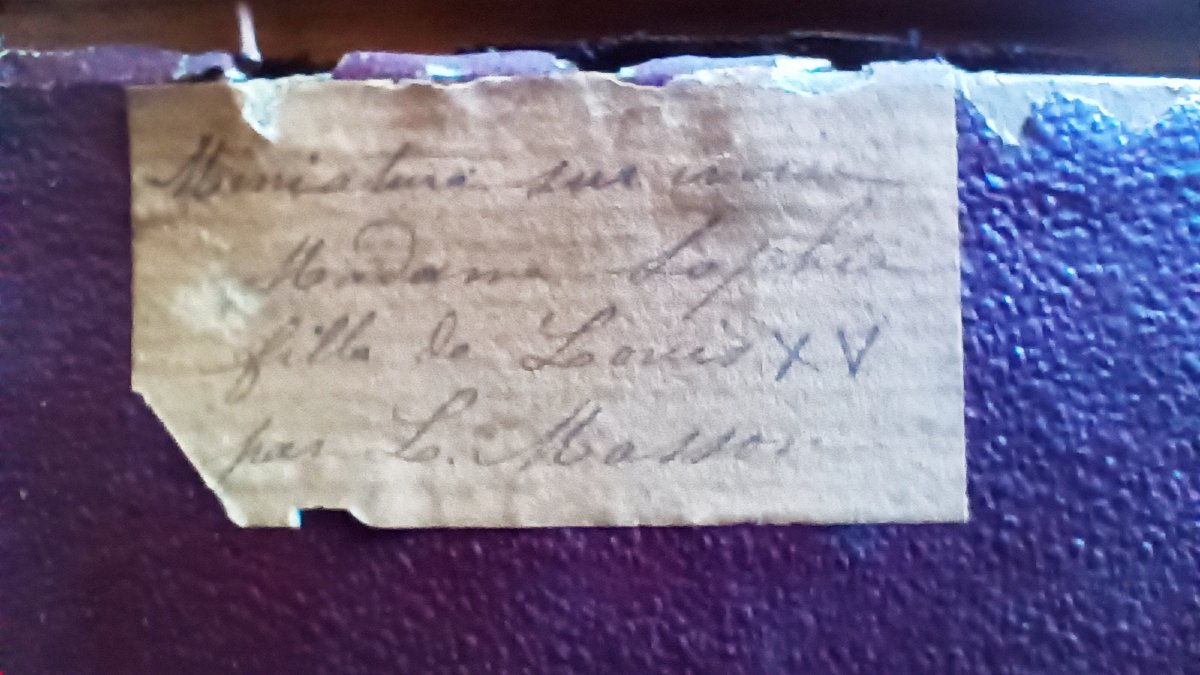 Miniature sur ivoire
Madame Sophie
fille de Louis XV
par L. Masson